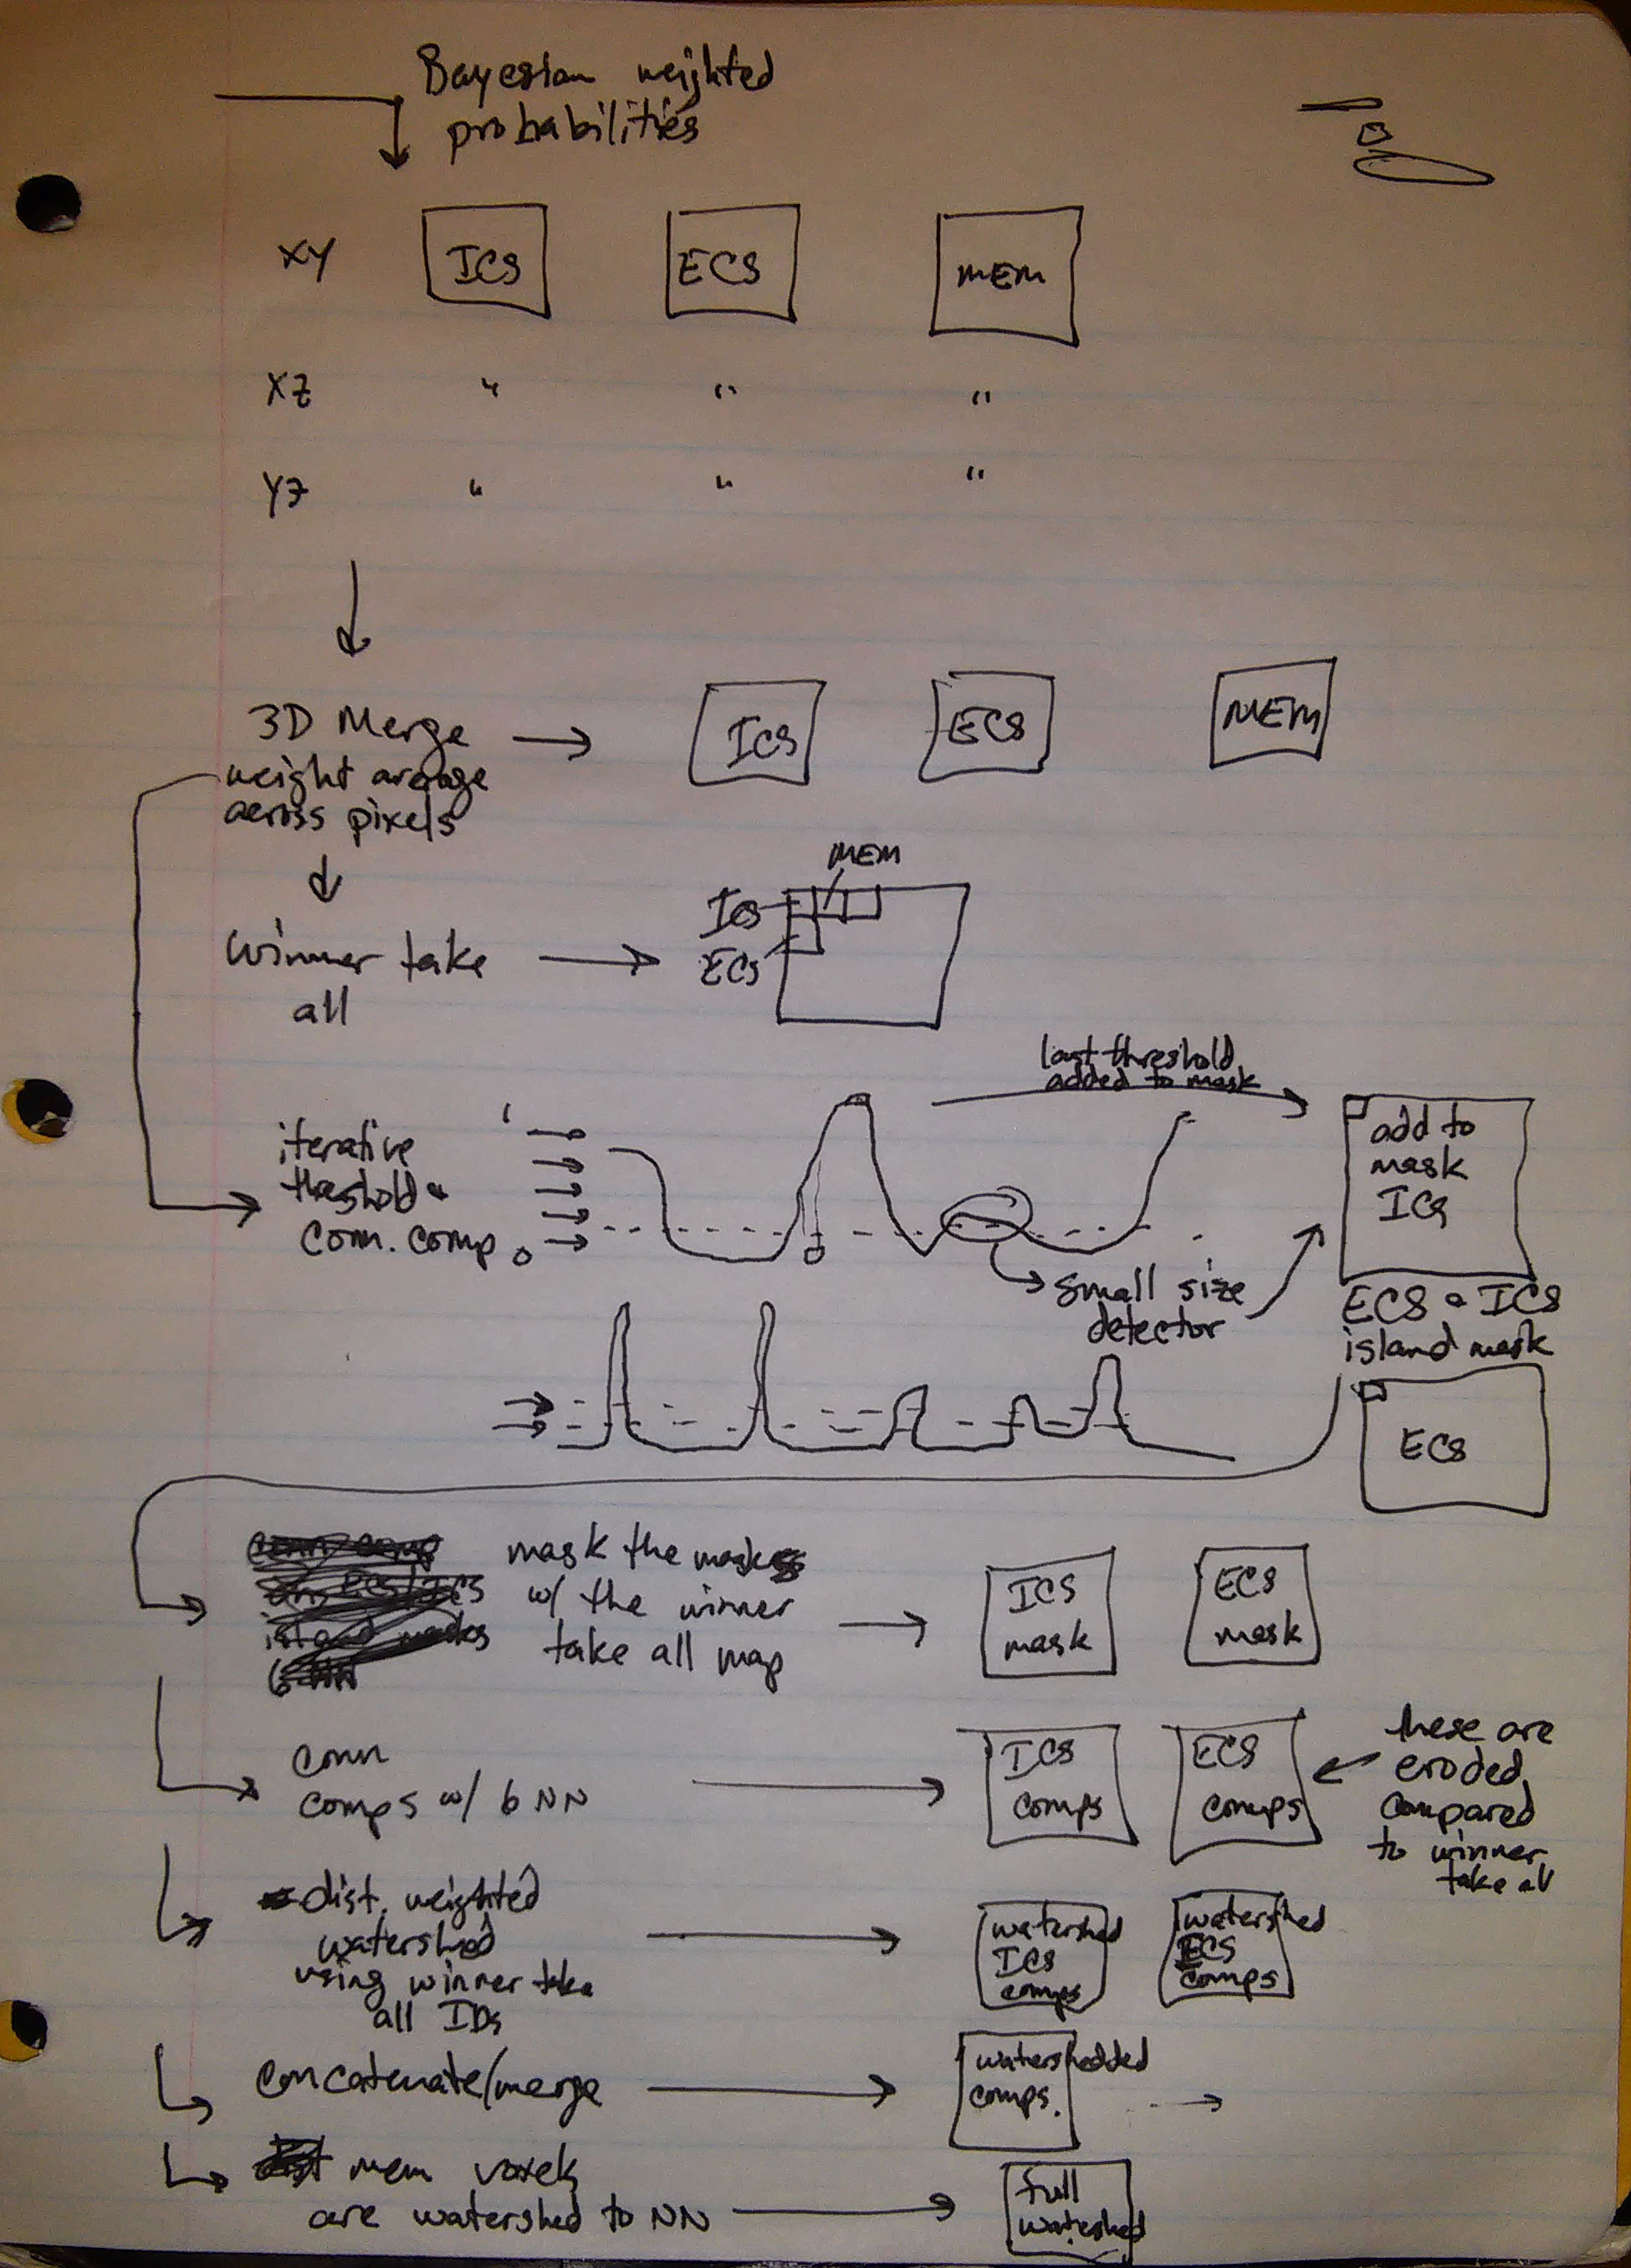 Bayesian weighted
probabilities
XY ICS ECS MEM
XZ " " "
YZ " " "
3D Merge → ICS ECS MEM
weight average
across pixels
MEM
ICS
Winner take → ECS
all
last threshold
added to mask
iterative 1
threshold &
conn. comp 0
add to
mask
ICS
small size
detector
ECS & ICS
island mask
ECS
mask the masks
w/ the winner
take all map
ICS
mask
ECS
mask
conn
comps w/ 6 NN
ICS
comps
ECS
comps
these are
eroded
compared
to winner
take all
dist. weighted
watershed
using winner take
all IDs
watershed
ICS
comps
watershed
ECS
comps
concatenate/merge
watershedded
comps.
mem voxels
are watershed to NN
full
watershed